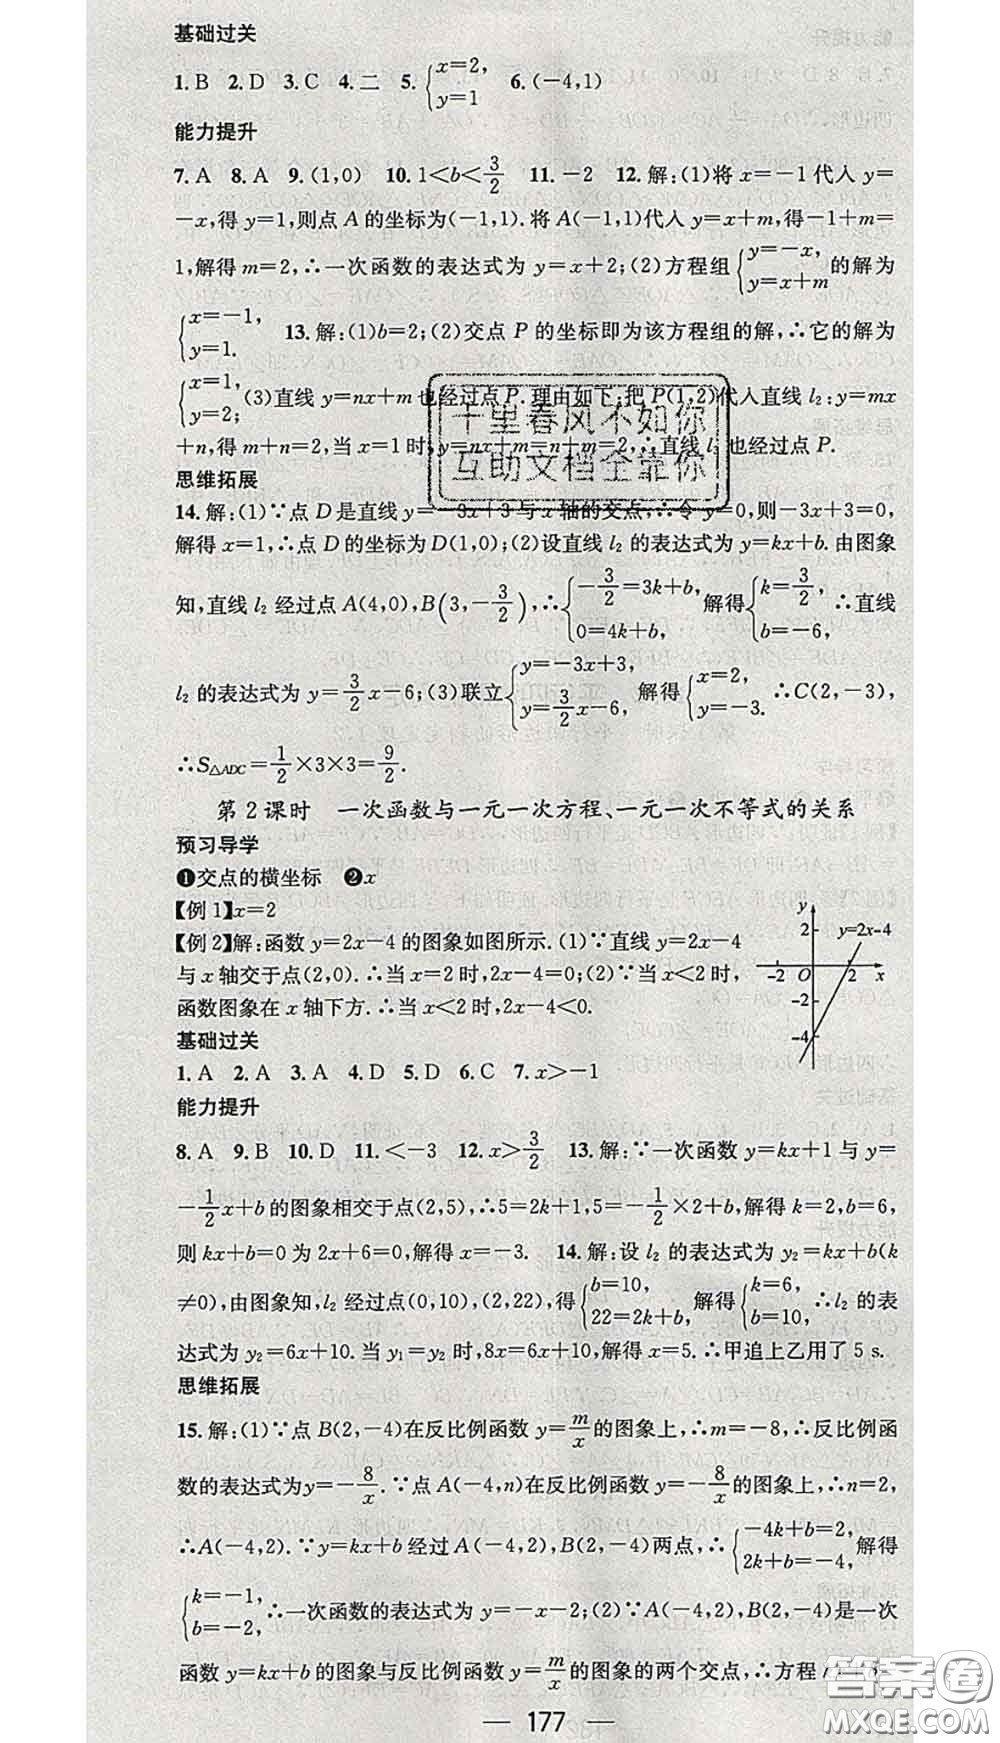 基础过关
1.B 2.D 3.C 4.二 5.{x=2, y=1 6.(-4,1)
能力提升
7.A 8.A 9.(1,0) 10.1<b<3/2 11.-2 12.解:(1)将 x=-1代入 y=
-x,得 y=1,则点 A 的坐标为(-1,1).将 A(-1,1)代入 y=x+m,得-1+m=
1,解得 m=2,∴一次函数的表达式为 y=x+2;(2)方程组{y=-x, y=x+m 的解为
{x=-1, y=1. 13.解:(1)b=2;(2)交点 P 的坐标即为该方程组的解,∴它的解为
{x=1, y=2; (3)直线 y=nx+m 也经过点 P.理由如下:把 P(1,2)代入直线 l₂:y=mx
+n,得 m+n=2,当 x=1 时,y=nx+m=n+m=2,∴直线 l 也经过点 P.
思维拓展
14.解:(1)∵点 D 是直线 y= 3x+3 与 x 轴的交点,∴令 y=0,则-3x+3=0,
解得 x=1,∴点 D 的坐标为 D(1,0);(2)设直线 l₂ 的表达式为 y=kx+b.由图象
知,直线 l₂ 经过点 A(4,0),B(3,-3/2),∴{-3/2=3k+b, 0=4k+b, 解得{k=3/2, b=-6, ∴直线
l₂ 的表达式为 y=3/2x-6;(3)联立{y=-3x+3, y=3/2x-6, 解得{x=2, y=-3. ∴C(2,-3),
∴S△ADC=1/2×3×3=9/2.
第 2 课时 一次函数与一元一次方程、一元一次不等式的关系
预习导学
❶交点的横坐标 ❷x
【例 1】x=2
【例 2】解:函数 y=2x-4 的图象如图所示.(1)∵直线 y=2x-4
与 x 轴交于点(2,0).∴当 x=2 时,2x-4=0;(2)∵当 x<2 时,
函数图象在 x 轴下方.∴当 x<2 时,2x-4<0.
y
2
y=2x-4
-2 O 2 x
-2
-4
基础过关
1.A 2.A 3.A 4.D 5.D 6.C 7.x>-1
能力提升
8.A 9.B 10.D 11.<-3 12.x>3/2 13.解:∵一次函数 y=kx+1 与 y=
-1/2x+b 的图象相交于点(2,5),∴5=2k+1,5=-1/2×2+b,解得 k=2,b=6,
则 kx+b=0 为 2x+6=0,解得 x=-3. 14.解:设 l₂ 的表达式为 y₂=kx+b(k
≠0),由图象知,l₂ 经过点(0,10),(2,22),得{b=10, 22=2k+b, 解得{k=6, b=10, ∴l₂ 的表
达式为 y₂=6x+10.当 y₁=y₂ 时,8x=6x+10,解得 x=5.∴甲追上乙用了 5 s.
思维拓展
15.解:(1)∵点 B(2,-4)在反比例函数 y=m/x 的图象上,∴m=-8,∴反比例函
数的表达式为y=-8/x.∵点 A(-4,n)在反比例函数 y=-8/x 的图象上,∴n=2,
∴A(-4,2).∵y=kx+b 经过 A(-4,2),B(2,-4)两点,∴{-4k+b=2, 2k+b=-4, 解得
{k=-1, b=-2, ∴一次函数的表达式为 y=-x-2;(2)∵A(-4,2),B(2,-4)是一次
函数 y=kx+b 的图象与反比例函数 y=m/x 的图象的两个交点,∴方程
— 177 —
千里春风不如你
互助文档全靠你
答案圈
MXQE.COM